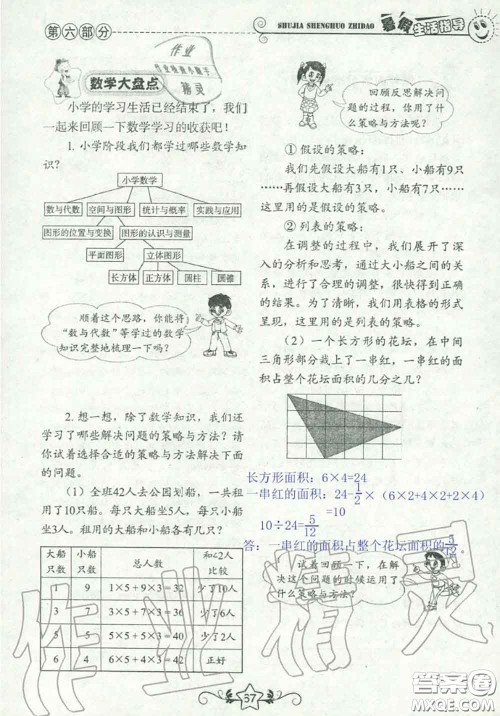 第六部分
SHUJIA SHENGHUO ZHIDAO
暑假生活指导
作业
精灵
数学大盘点
小学的学习生活已经结束了，我们
一起来回顾一下数学学习的收获吧！
1. 小学阶段我们都学过哪些数学知
识？
小学数学
数与代数 空间与图形 统计与概率 实践与应用
图形的位置与变换 图形的认识与测量
平面图形 立体图形
长方体 正方体 圆柱 圆锥
顺着这个思路，你能将
“数与代数”等学过的数学
知识完整地梳理一下吗？
2. 想一想，除了数学知识，我们还
学习了哪些解决问题的策略与方法？请
你试着选择合适的策略与方法解决下面
的问题。
（1）全班42人去公园划船，一共租
用了10只船。每只大船坐5人，每只小船
坐3人。租用的大船和小船各有几只？
大船只数 小船只数 总人数 和42人比较
9 1×5＋9×3＝32 少了10人
3 7 3×5＋7×3＝36 少了6人
5 5 5×5＋5×3＝40 少了2人
6 4 6×5＋4×3＝42 正好
回顾反思解决问
题的过程，你用了什
么策略与方法呢？
① 假设的策略：
我们先假设大船有1只、小船有9只
……再假设大船有3只，小船有7只……
这里用的是假设的策略。
② 列表的策略：
在调整的过程中，我们展开了深
入的分析和思考，通过大小船之间的关
系，进行了合理的调整，很快得到正确
的结果。为了清晰，我们用表格的形式
呈现，这里用的是列表的策略。
（2）一个长方形的花坛，在中间
三角形部分栽上了一串红，一串红的面
积占整个花坛面积的几分之几？
长方形面积：6×4=24
一串红的面积：24-1/2×（6×2+4×2+2×4）
10÷24=5/12
答：一串红的面积占整个花坛面积的5/12。
试着回顾一下，在解
决这个问题的时候运用了
什么策略与方法？
作业精灵
37
答案圈
MXQE.COM